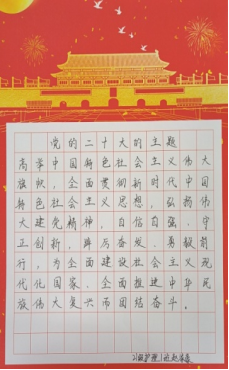 党的二十大的主题
高举中国特色社会主义伟大
旗帜，全面贯彻新时代中国
特色社会主义思想，弘扬伟
大建党精神，自信自强、守
正创新，踔厉奋发、勇毅前
行，为全面建设社会主义现
代化国家、全面推进中华民
族伟大复兴而团结奋斗。